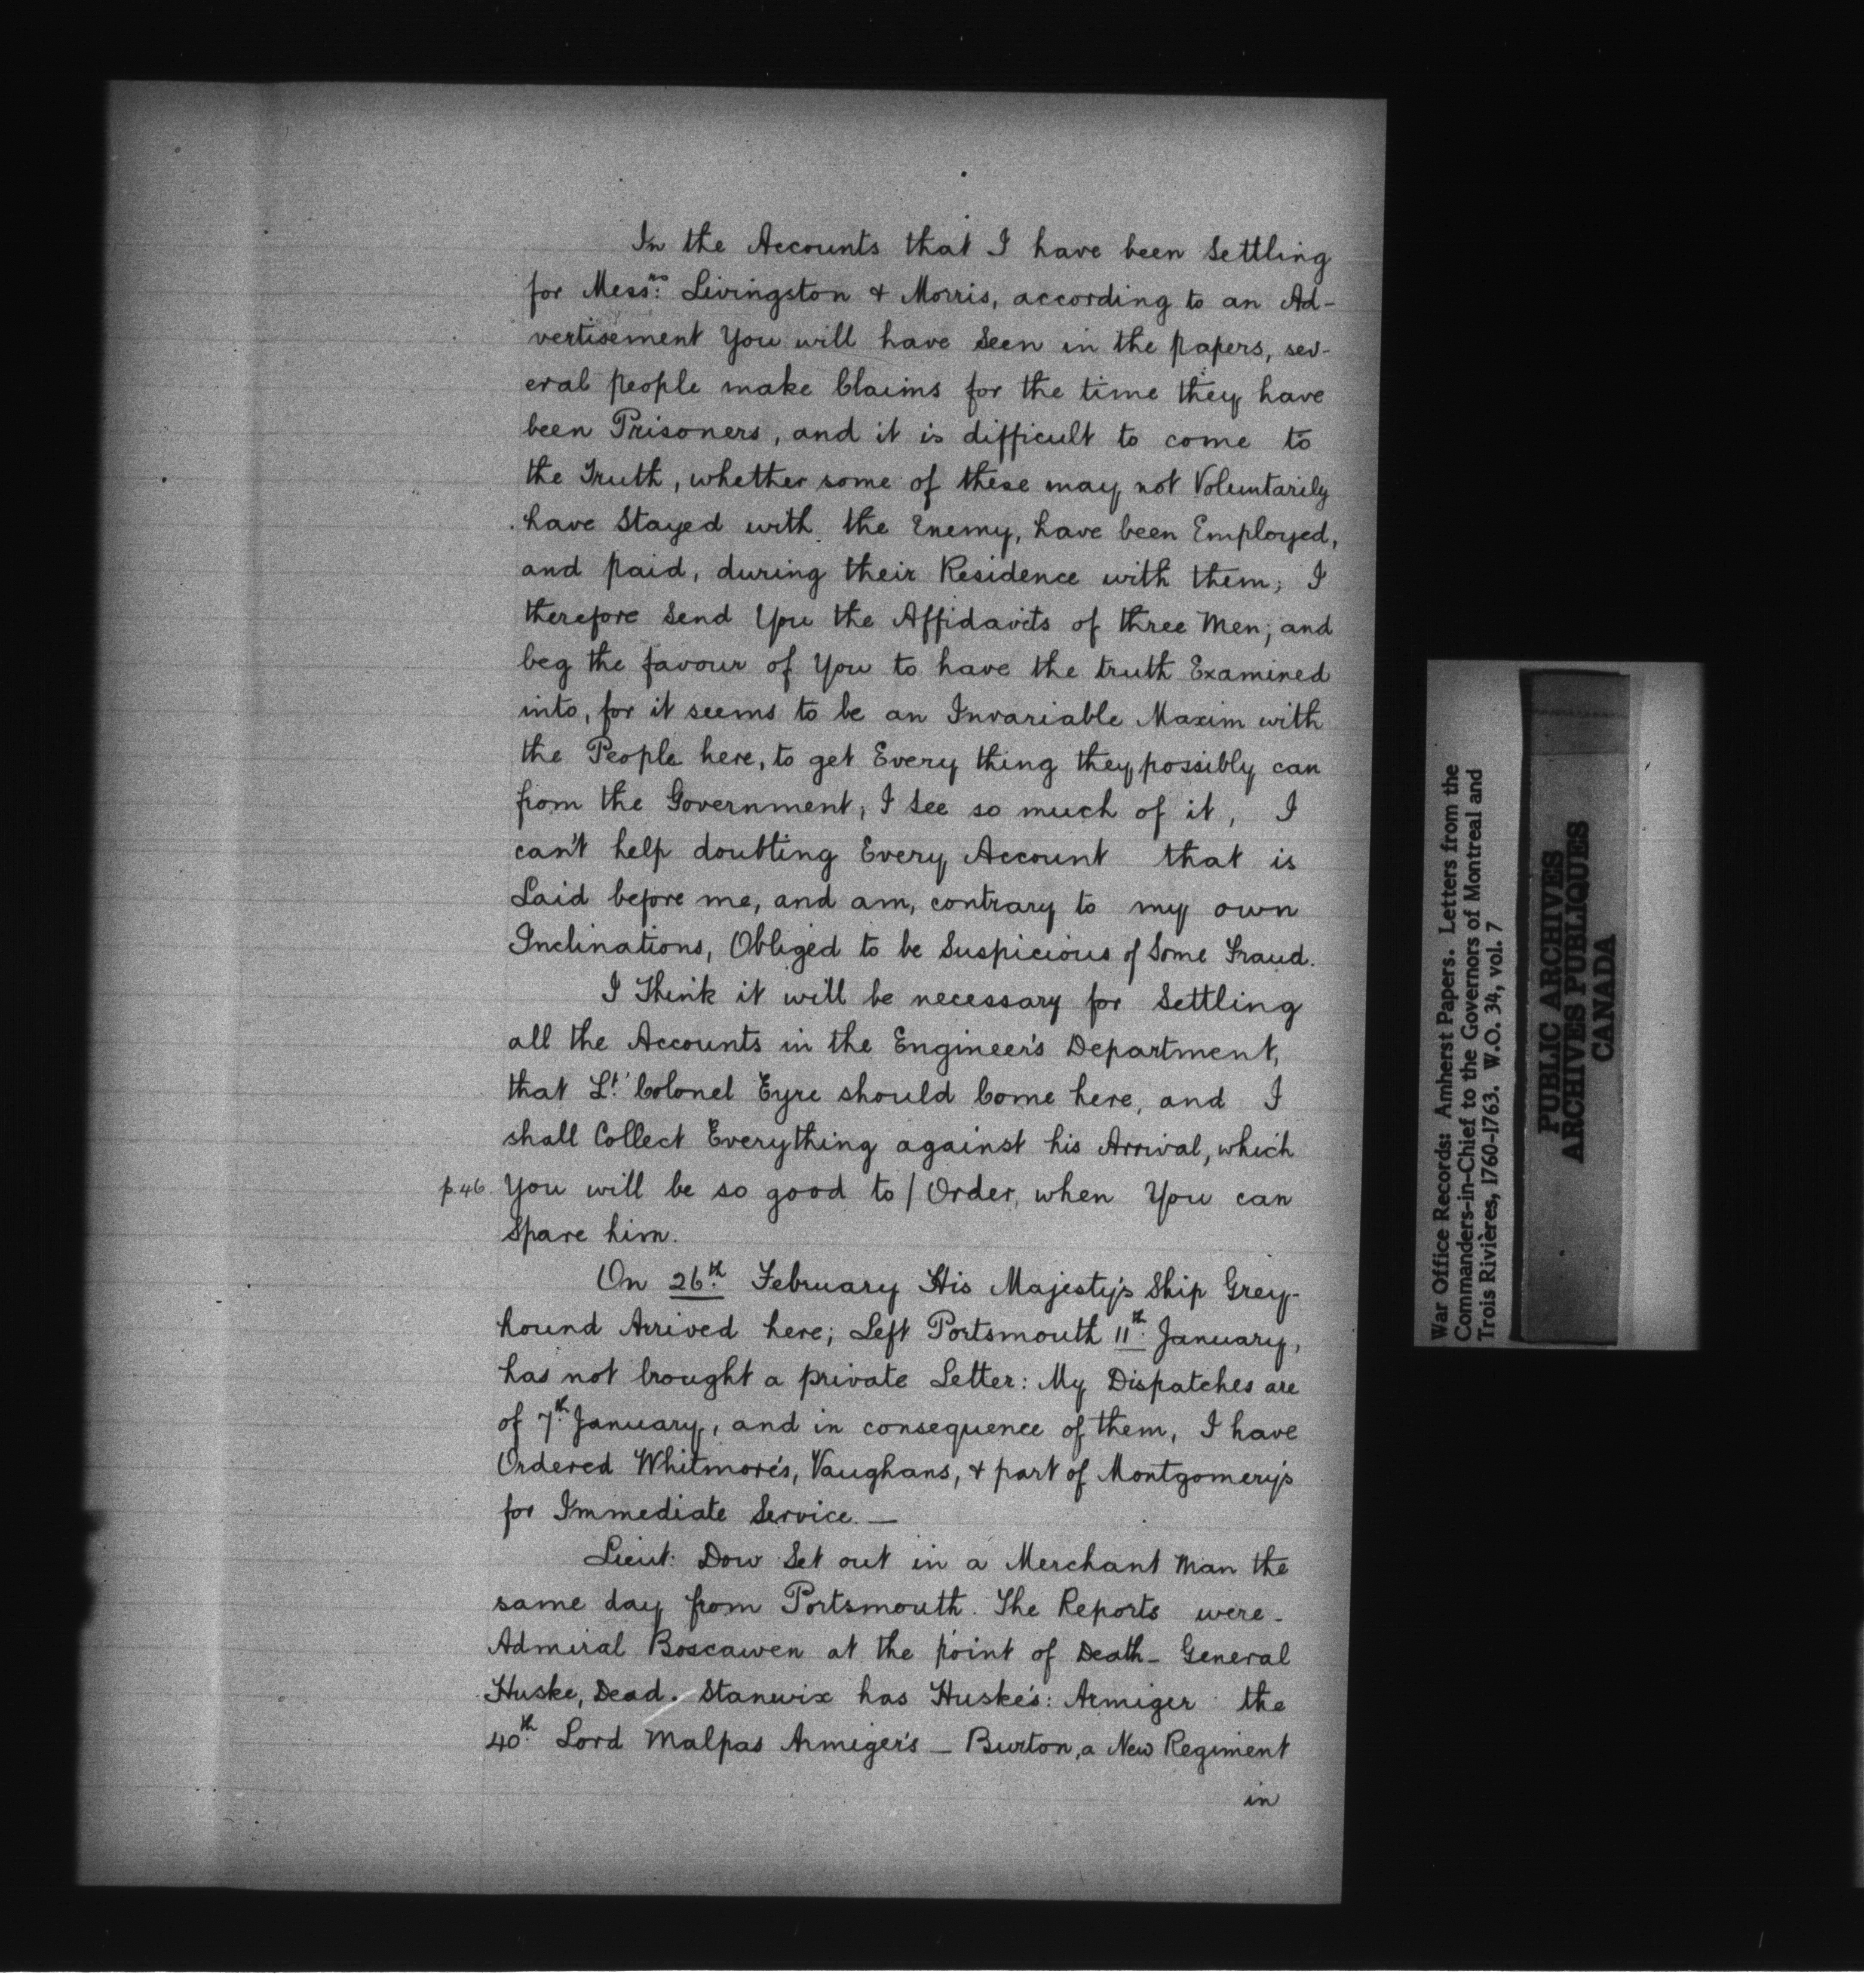 In the Accounts that I have been Settling
for Mess.rs Livingston & Morris, according to an Ad-
vertisement You will have Seen in the papers, sev-
eral people make Claims for the time they have
been Prisoners, and it is difficult to come to
the Truth, whether some of these may not Voluntarily
have Stayed with the Enemy, have been Employed,
and paid, during their Residence with them; I
therefore Send You the Affidavits of three Men; and
beg the favour of You to have the truth Examined
into, for it seems to be an Invariable Maxim with
the People here, to get Every thing they possibly can
from the Government; I See so much of it, I
can't help doubting Every Account that is
Laid before me, and am, contrary to my own
Inclinations, Obliged to be Suspicious of Some Fraud.
I Think it will be necessary for Settling
all the Accounts in the Engineer's Department,
that Lt. Colonel Eyre should Come here, and I
shall Collect Everything against his Arrival, which
p.46. You will be so good to / Order, when You can
Spare him.
On 26th February His Majesty's Ship Grey-
hound Arrived here; Left Portsmouth 11th January,
has not brought a private Letter: My Dispatches are
of 7th January, and in consequence of them, I have
Ordered Whitmore's, Vaughans, & part of Montgomery's
for Immediate Service. —
Lieut: Dow Set out in a Merchant Man the
same day from Portsmouth. The Reports were -
Admiral Boscawen at the point of Death - General
Huske, Dead. Stanwix has Huske's: Armiger the
40th Lord Malpas Armiger's — Burton, a New Regiment
in
War Office Records: Amherst Papers. Letters from the
Commanders-in-Chief to the Governors of Montreal and
Trois Rivières, 1760-1763. W.O. 34, vol. 7
PUBLIC ARCHIVES
ARCHIVES PUBLIQUES
CANADA